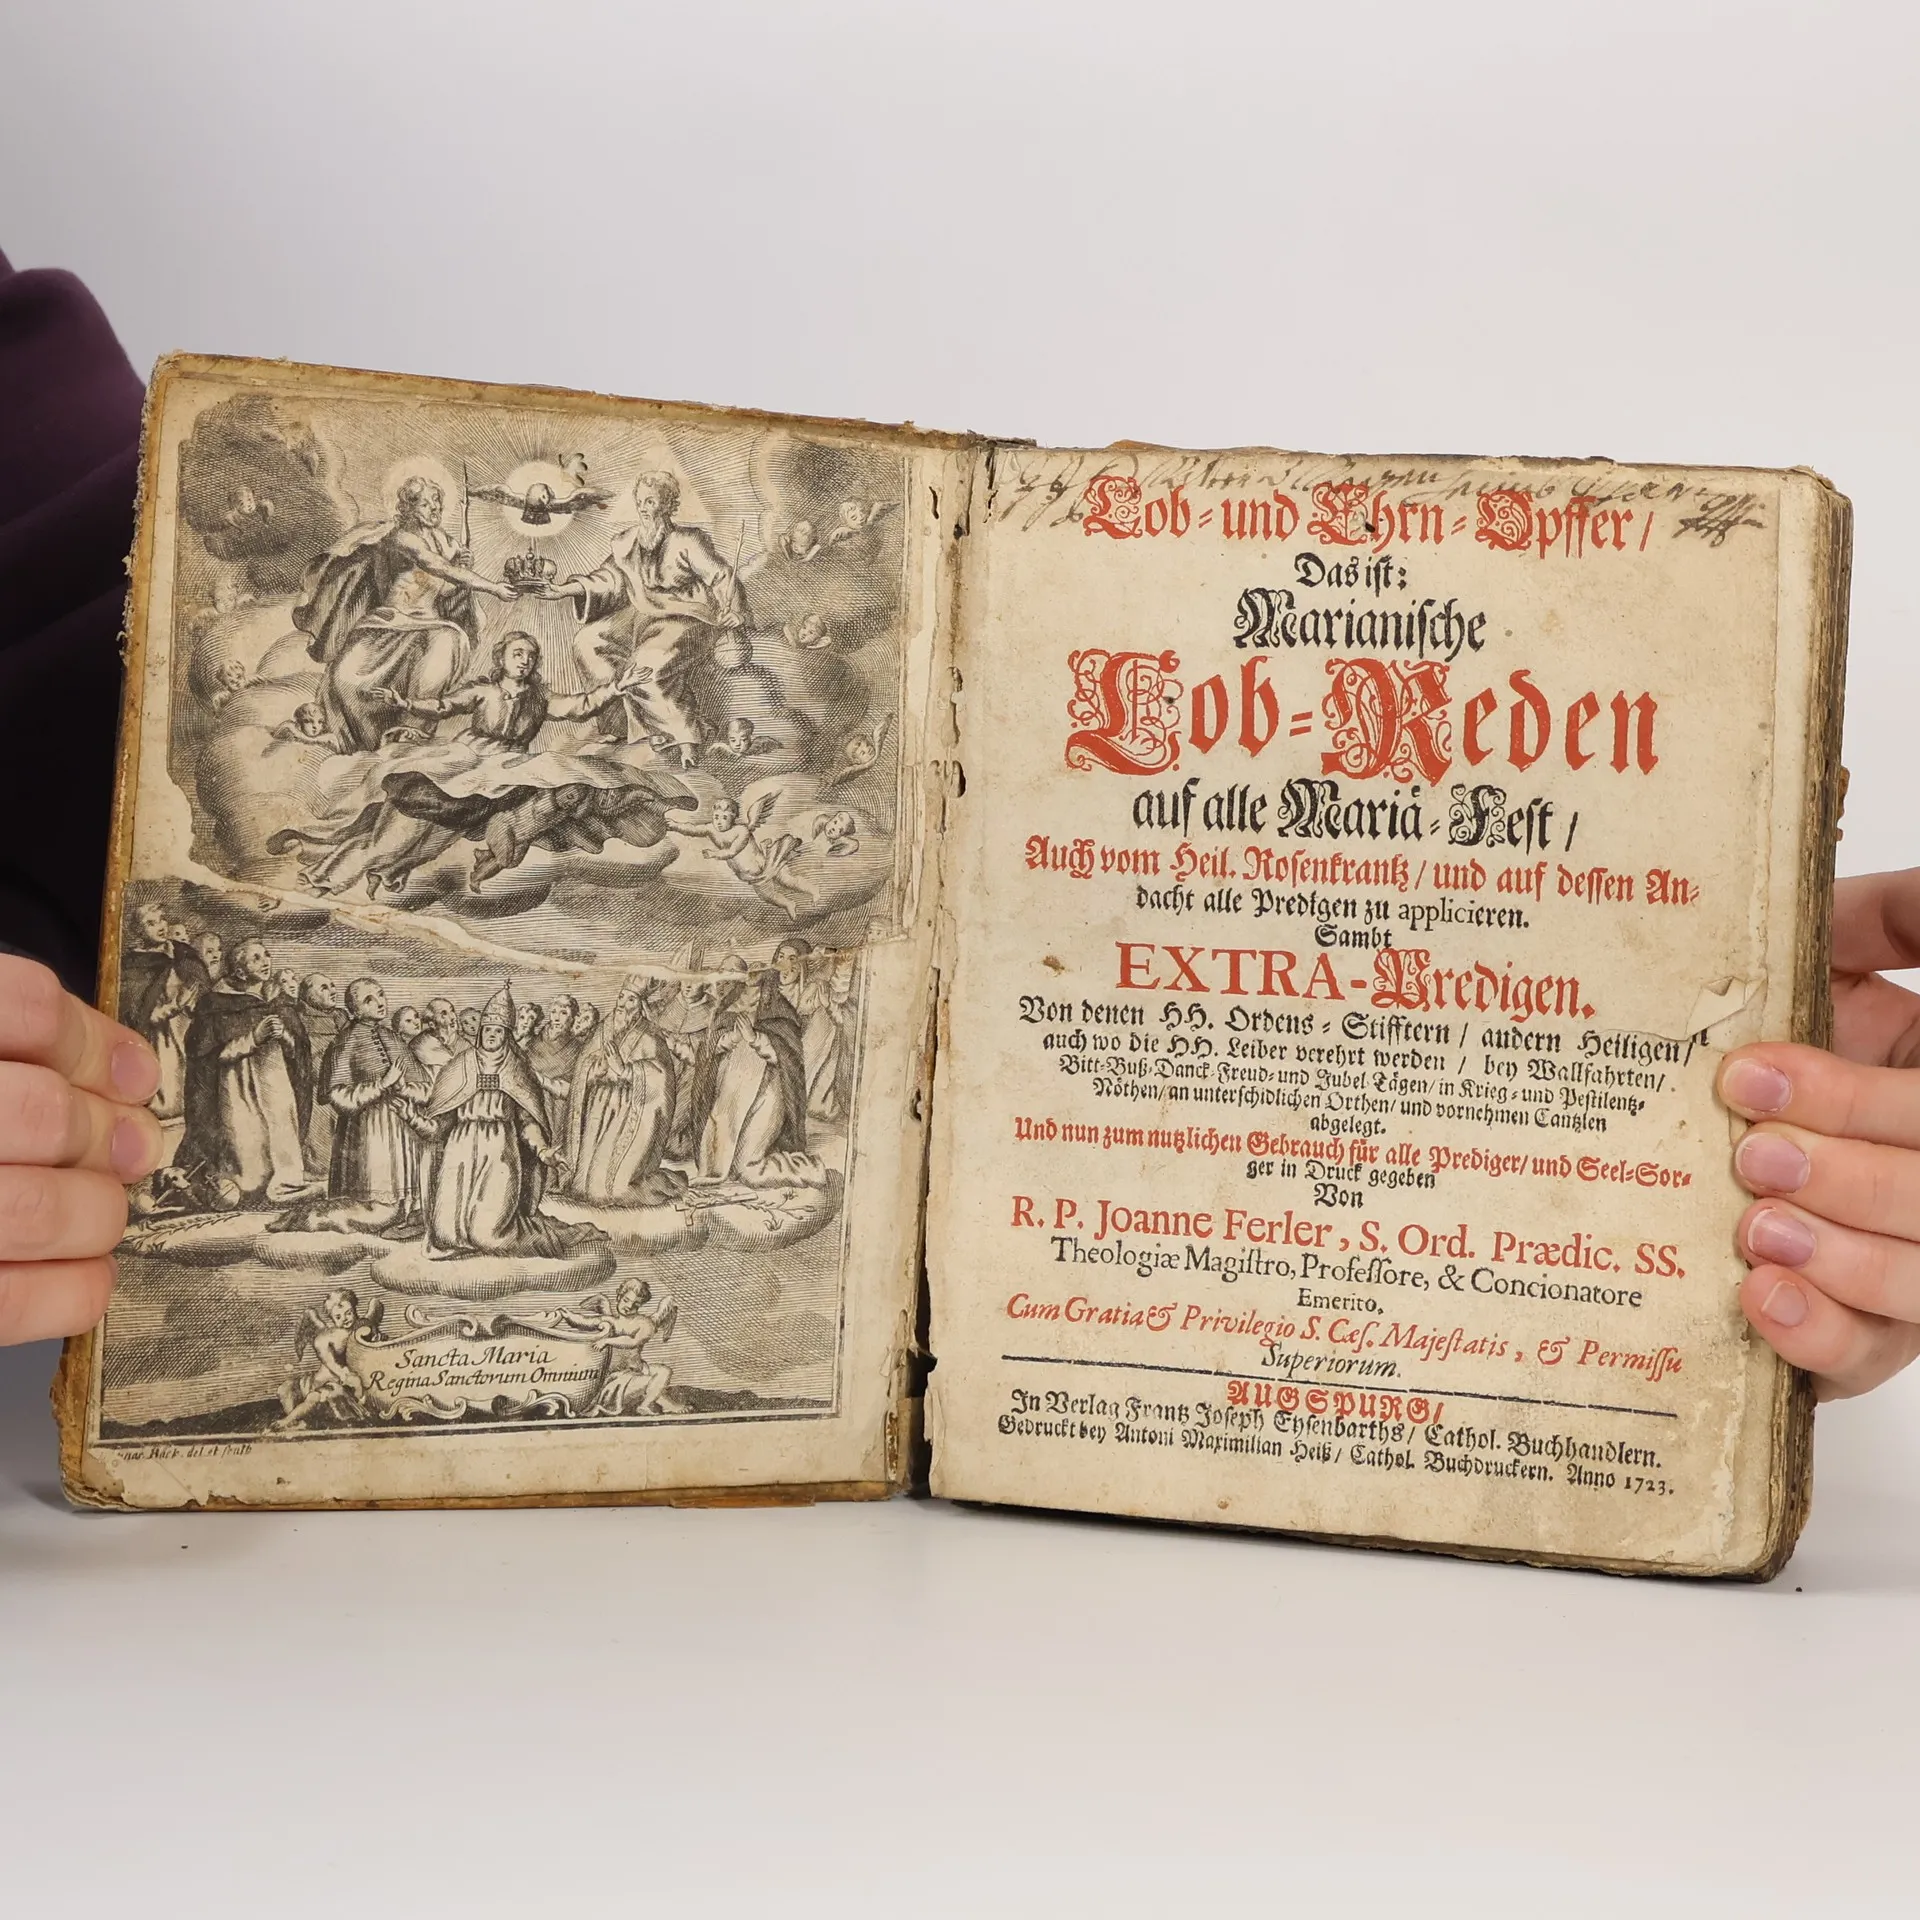 Sancta Maria
Regina Sanctorum Omnium
del. et sculp
Lob= und Ehrn=Opffer/
Das ist:
Marianische
Lob=Reden
auf alle Mariä=Fest/
Auch vom Heil. Rosenkrantz/ und auf dessen An=
dacht alle Predigen zu applicieren.
Sambt
EXTRA-Predigen.
Von denen HH. Ordens=Stifftern/ andern Heiligen/
auch wo die HH. Leiber verehrt werden/ bey Wallfahrten/
Bitt=Buß=Danck=Freud=und Jubel=Tägen/ in Krieg=und Pestilentz=
Nöthen/ an unterschidlichen Orthen/ und vornehmen Cantzlen
abgelegt.
Und nun zum nutzlichen Gebrauch für alle Prediger/ und Seel=Sor=
ger in Druck gegeben
Von
R. P. Joanne Ferler, S. Ord. Prædic. SS.
Theologiæ Magiſtro, Profeſſore, & Concionatore
Emerito.
Cum Gratia & Privilegio S. Cæſ. Majeſtatis, & Permiſſu
Superiorum.
AUGSPURG/
In Verlag Frantz Joseph Eysenbarths/ Cathol. Buchhandlern.
Gedruckt bey Antoni Maximilian Heiß/ Cathol. Buchdruckern. Anno 1723.